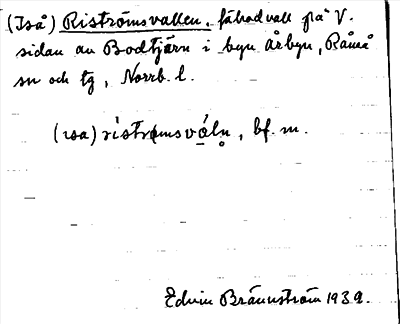 (Iså) Riströmsvallen, fäbodvall på V.
sidan av Bodtjärn i byn Årbyn, Råneå
sn och tg, Norrb. l.
(isa) riströmsváln, bf. m.
Edvin Brännström 1939.